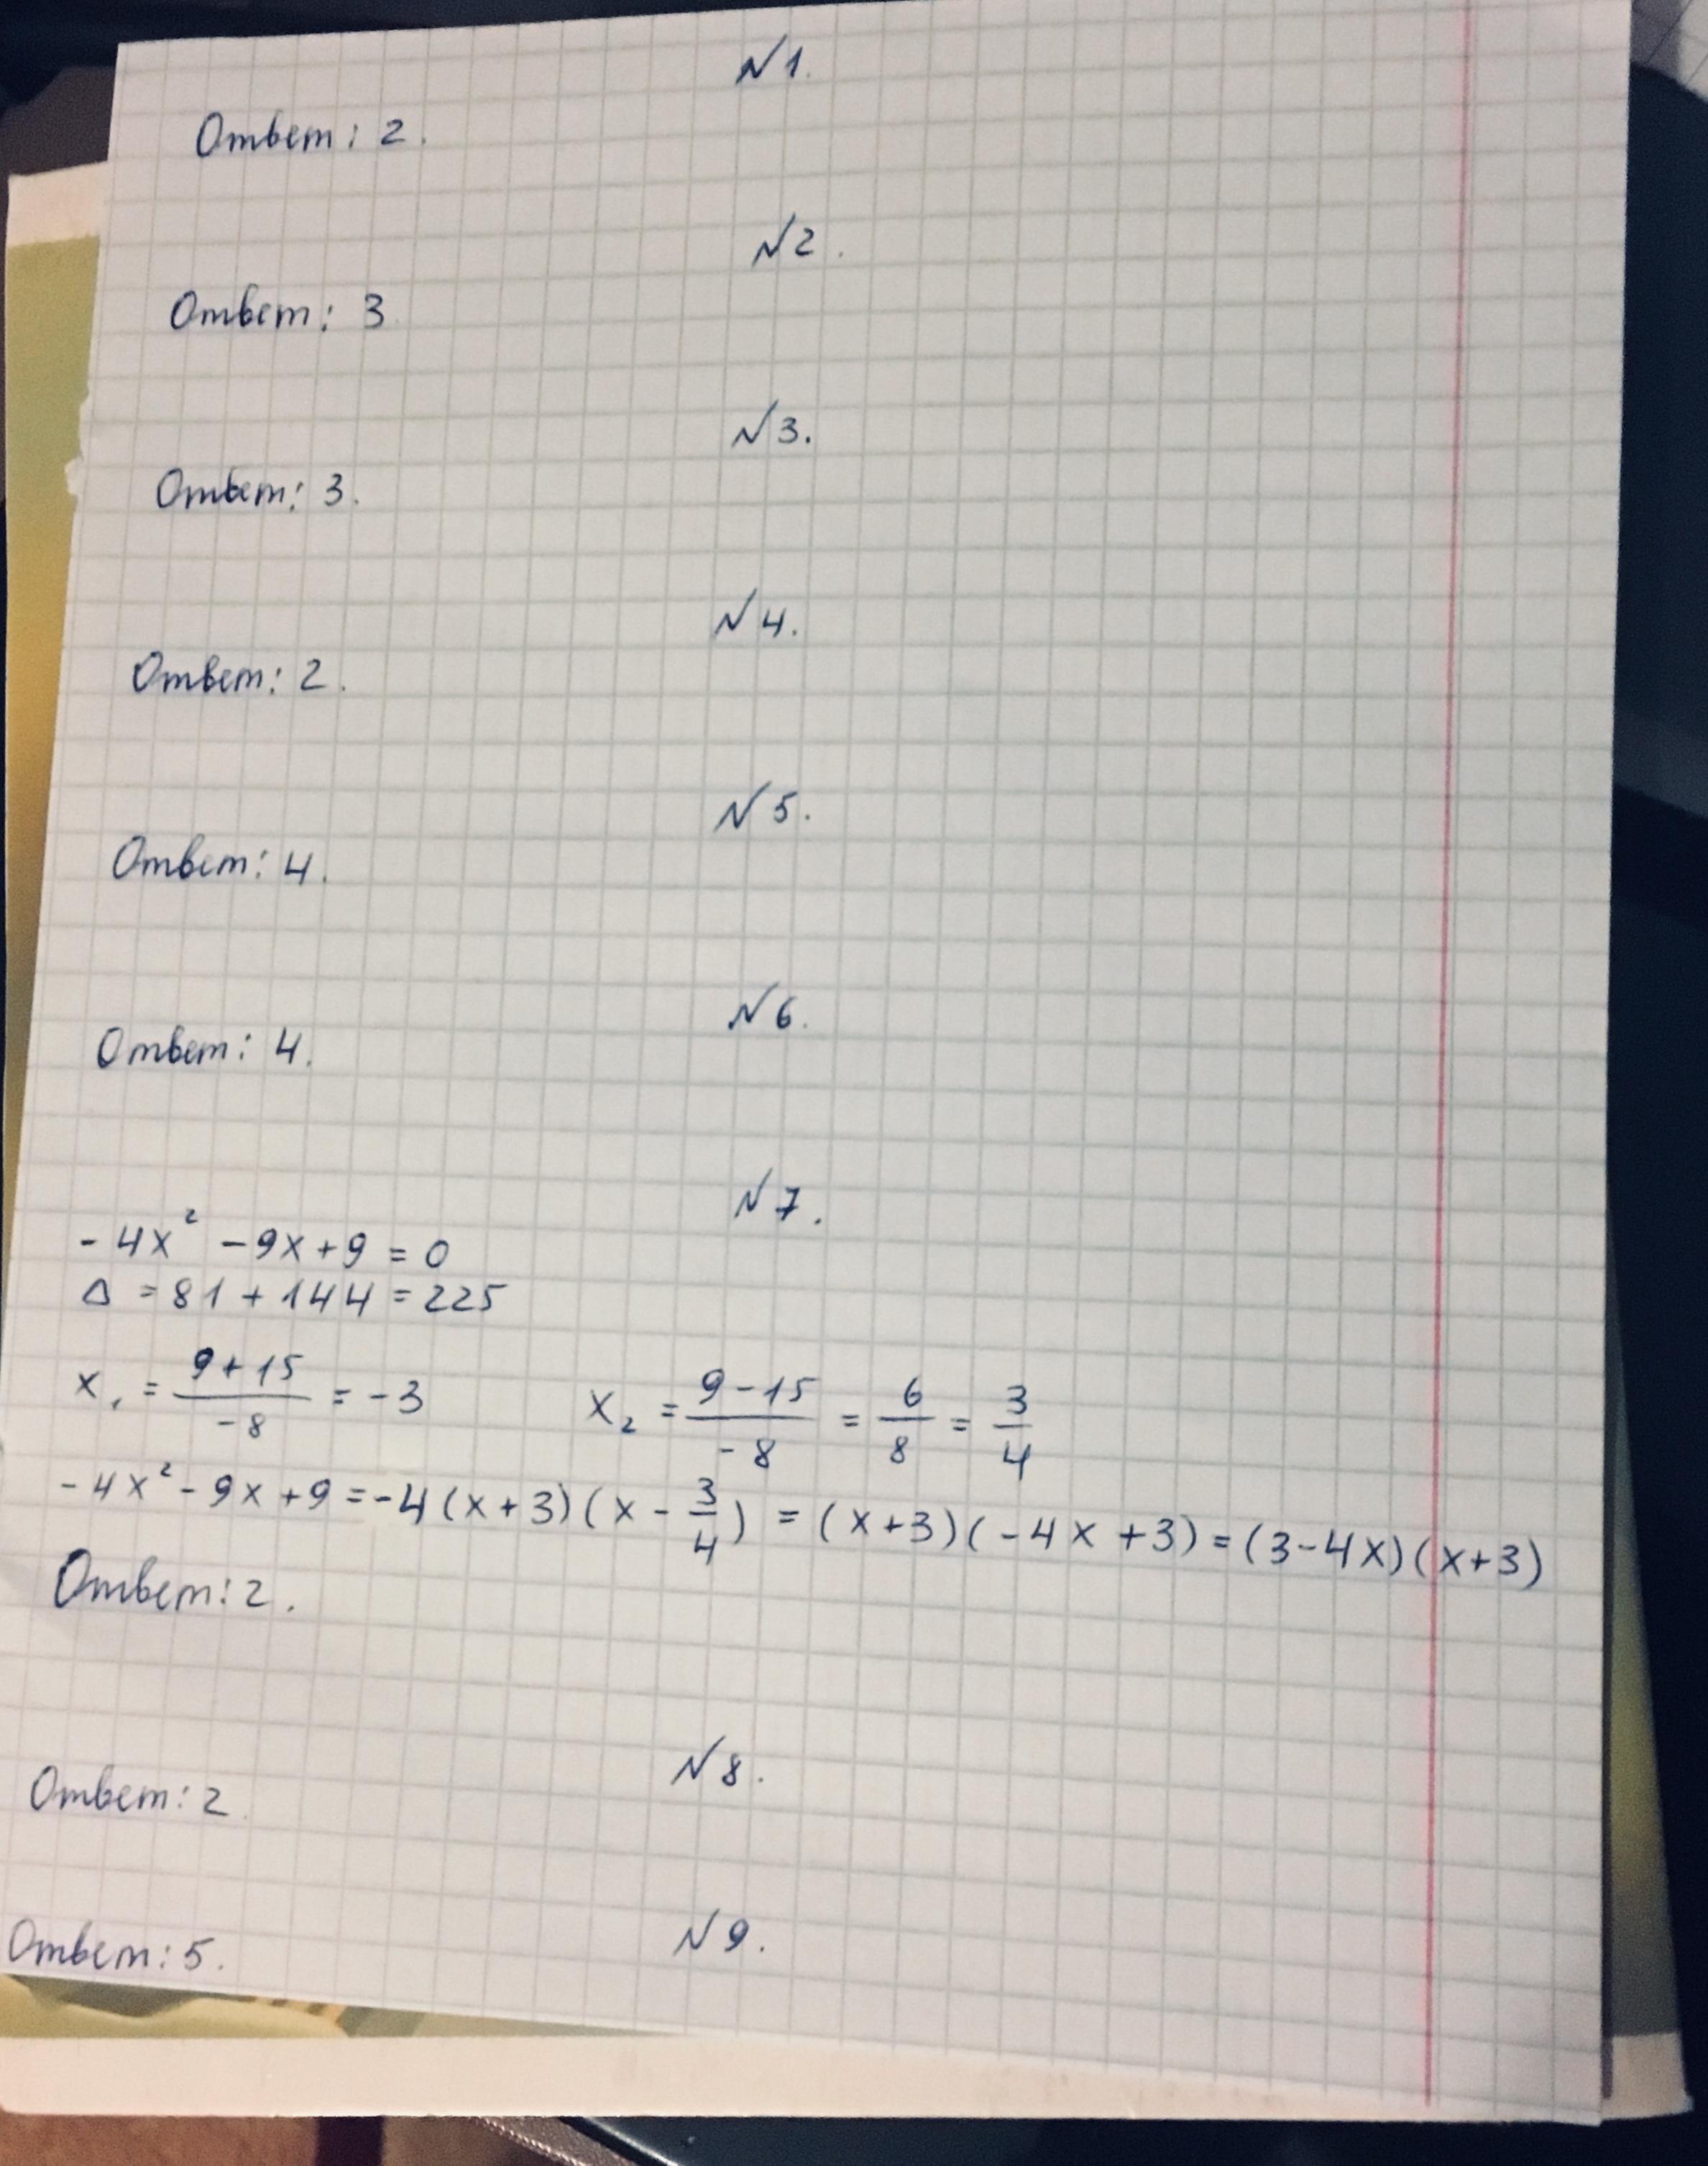 №1.
Ответ: 2.
№2.
Ответ: 3.
№3.
Ответ: 3.
№4.
Ответ: 2.
№5.
Ответ: 4.
№6.
Ответ: 4.
№7.
-4x² - 9x + 9 = 0
Δ = 81 + 144 = 225
x₁ = (9+15)/(-8) = -3    x₂ = (9-15)/(-8) = 6/8 = 3/4
-4x² - 9x + 9 = -4(x+3)(x - 3/4) = (x+3)(-4x+3) = (3-4x)(x+3)
Ответ: 2.
№8.
Ответ: 2.
№9.
Ответ: 5.